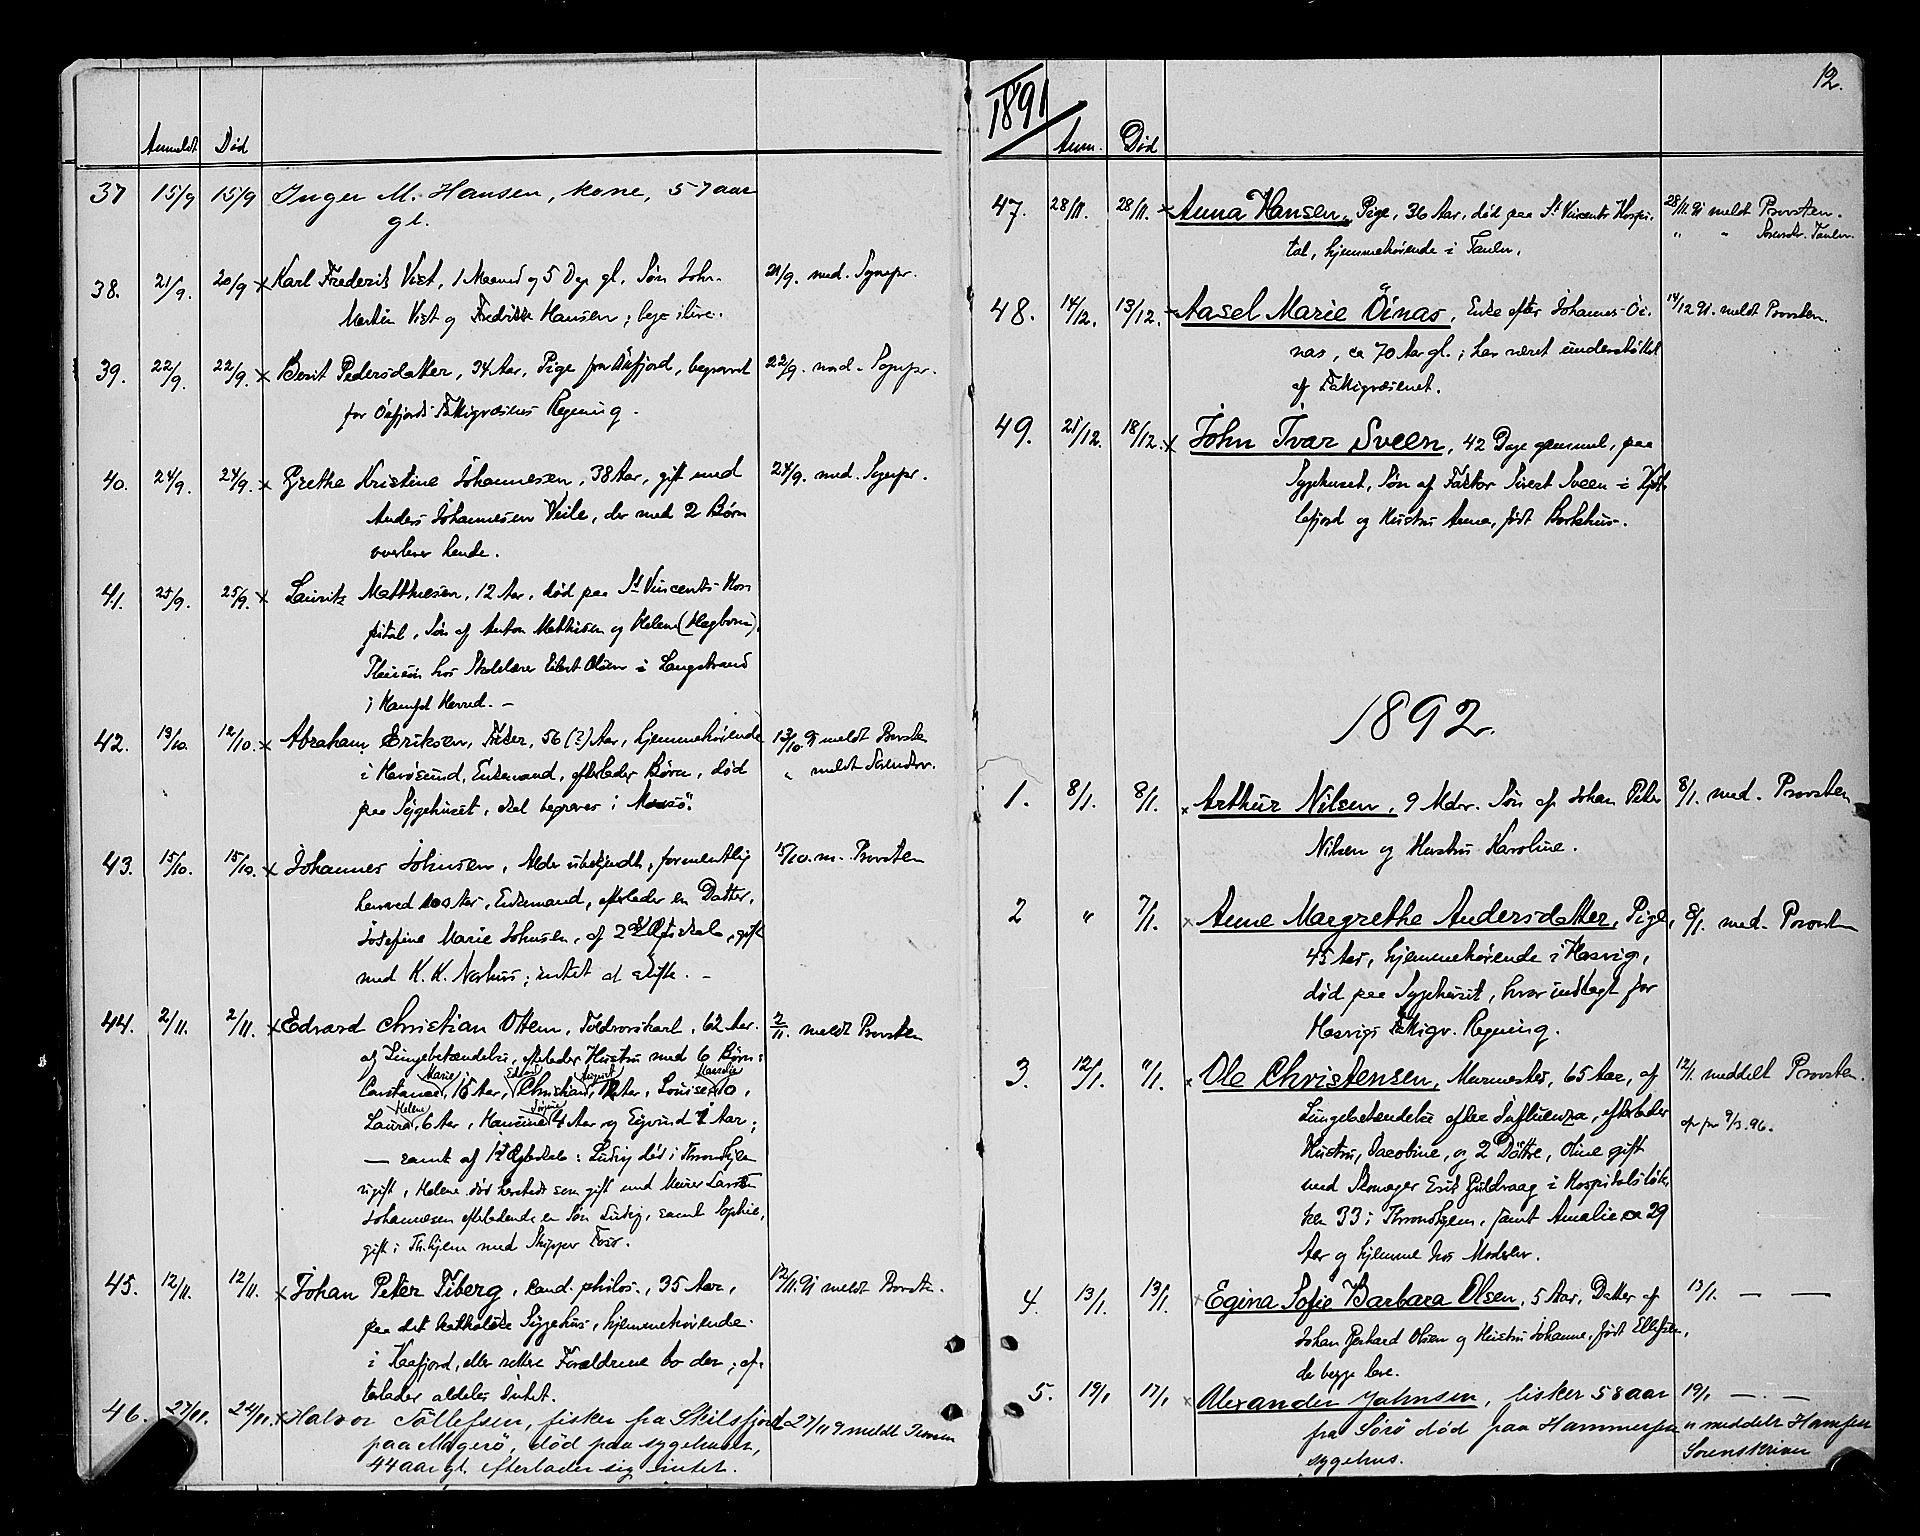 Anmeldt Død
37 15/9 15/9 Inger M. Hansen, kone, 57 aar
gl.
38. 21/9. 20/9 x Karl Frederik Vist, 1 Maaned og 5 Dage gl, Søn John
Martin Vist og Fredrikke Hansen; begge i live.
21/9. med. Sognepr.
39. 22/9. 22/9. x Berit Pedersdatter, 34 Aar, Pige fra Øxfjord, begravet
for Øxfjords Fattigvæsens Regning.
22/9. med. Sognepr.
40. 24/9. 24/9. x Grethe Kristine Johannesen, 38 Aar, gift med
Anders Johannesen Veile, der med 2 Børn
overlever hende.
24/9. med. Sognepr.
41. 25/9. 25/9. x Lauritz Matthiesen, 12 Aar, død paa St Vincents Hos
pital, Søn af Anton Mathisen og Helene (Hagbom),
Pleiesøn hos Skolelærer Olsen i Langstrand
i Hamfst Herred. —
42. 13/10. 12/10. x Abraham Eriksen, Fisker, 56 (?) Aar, hjemmehørende
i Havøsund, Enkemand, efterlader Børn, død
paa Sygehuset, skal begraves i Maasø.
13/10. 91 meldt Provsten
" meldt Sorenskr.
43. 15/10. 15/10. x Johannes Johnsen, Alder ubekjendt, formentlig
henved 100 Aar, Enkemand, efterlader en Datter,
Josefine Marie Johnsen, af 2det Ægteskab, gift
med K. K. Norhuus; intet at skifte. —
15/10. m. Provsten
44. 2/11. 2/11. x Edvard Christian Ottem, Toldrorskarl, 62 Aar.
af Lungebetændelse, efterlader Hustru med 6 Børn:
Marie Edvard August
Constance, 15 Aar, Christian, 12 Aar, Louise 10,
Helene
Laura, 6 Aar, Hansine 4 Aar og Eyvind 1 Aar;
— samt af 1st Ægteskab: Ludvig død i Throndhjem
ugift, Helene død hersteds som gift med Murer Larsen
Johannesen efterladende en Søn Ludvig, samt Sophie,
gift i Th.hjem med Skipper Foss.
2/11. meldt Provsten
45. 12/11. 12/11. x Johan Peter Fiberg, cand. philos., 35 Aar,
paa det katholske Sygehus, hjemmehørende
i Kaafjord, eller rettere Forældrene bo der; ef-
terlader aldeles Intet.
12/11. 91 meldt Provsten.
46. 27/11. 24/11. x Halvor Tollefsen, fisker fra Skibsfjord
paa Magerø, død paa sygehuset,
44 aar gl. efterlader sig intet.
27/11 91 meldt
12.
1891
Anm. Død
47. 28/11. 28/11. x Anna Hansen, Pige, 36 Aar, død paa St Vincents Hospi-
tal, hjemmehørende i Tanen.
28/11. 91 meldt Provsten.
" " Sorenskr. Tanen.
48. 14/12. 13/12. Aasel Marie Öinas, Enke efter Johannes Öi-
nas, ca 70 Aar gl.; har været understøttet
af Fattigvæsenet.
14/12 91. meldt Provsten.
49. 21/12. 18/12. x John Ivar Sveen, 42 Dage gammel, paa
Sygehuset, Søn af Faktor Sivert Sveen i Kjøl-
lefjord og Hustru Anna, født Borkhus.
1892.
1. 8/1. 8/1. x Arthur Nilsen, 9 Mdr. Søn af Johan Peter
Nilsen og Hustru Karoline.
8/1. med. Provsten
2 " 7/1. x Anne Margrethe Andersdatter, Pige,
45 Aar, hjemmehørende i Hasvig,
død paa Sygehuset, hvor indlagt for
Hasvigs Fattigv. Regning.
8/1. med. Provsten
3. 12/1. 11/1. x Ole Christensen, Murmester, 65 Aar, af
Lungebetændelse efter Influenza, efterlader
Hustru, Jacobine, og 2 Döttre, Oline gift
med Skomager Erik Guldvaag i Hospitalsløk-
ken 33 i Throndhjem, samt Amalie ca 29
Aar og hjemme hos Moderen.
12/1. meddelt Provsten.
9/3.96.
4. 13/1. 13/1. x Egina Sofie Barbara Olsen, 5 Aar, Datter af
Johan Gerhard Olsen og Hustru Johanne, født Ellefsen,
de begge leve.
13/1. — —
5. 19/1 17/1 x Alexander Johnsen, fisker 58 aar
fra Sørø død paa Hammerfest
sygehus.
19/1 — . —
" meddelt Hamfst
Sorenskriver